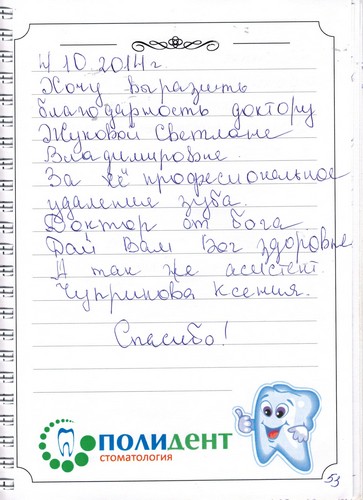 4 10.2014 г.
Хочу выразить
благодарность доктору
Жуковой Светлане
Владимировне.
За её професиональное
удаление зуба.
Доктор от бога
Дай Вам Бог здоровье
А так же асистент.
Чупринова Ксения.
Спасибо!
ПОЛИДЕНТ
СТОМАТОЛОГИЯ
53